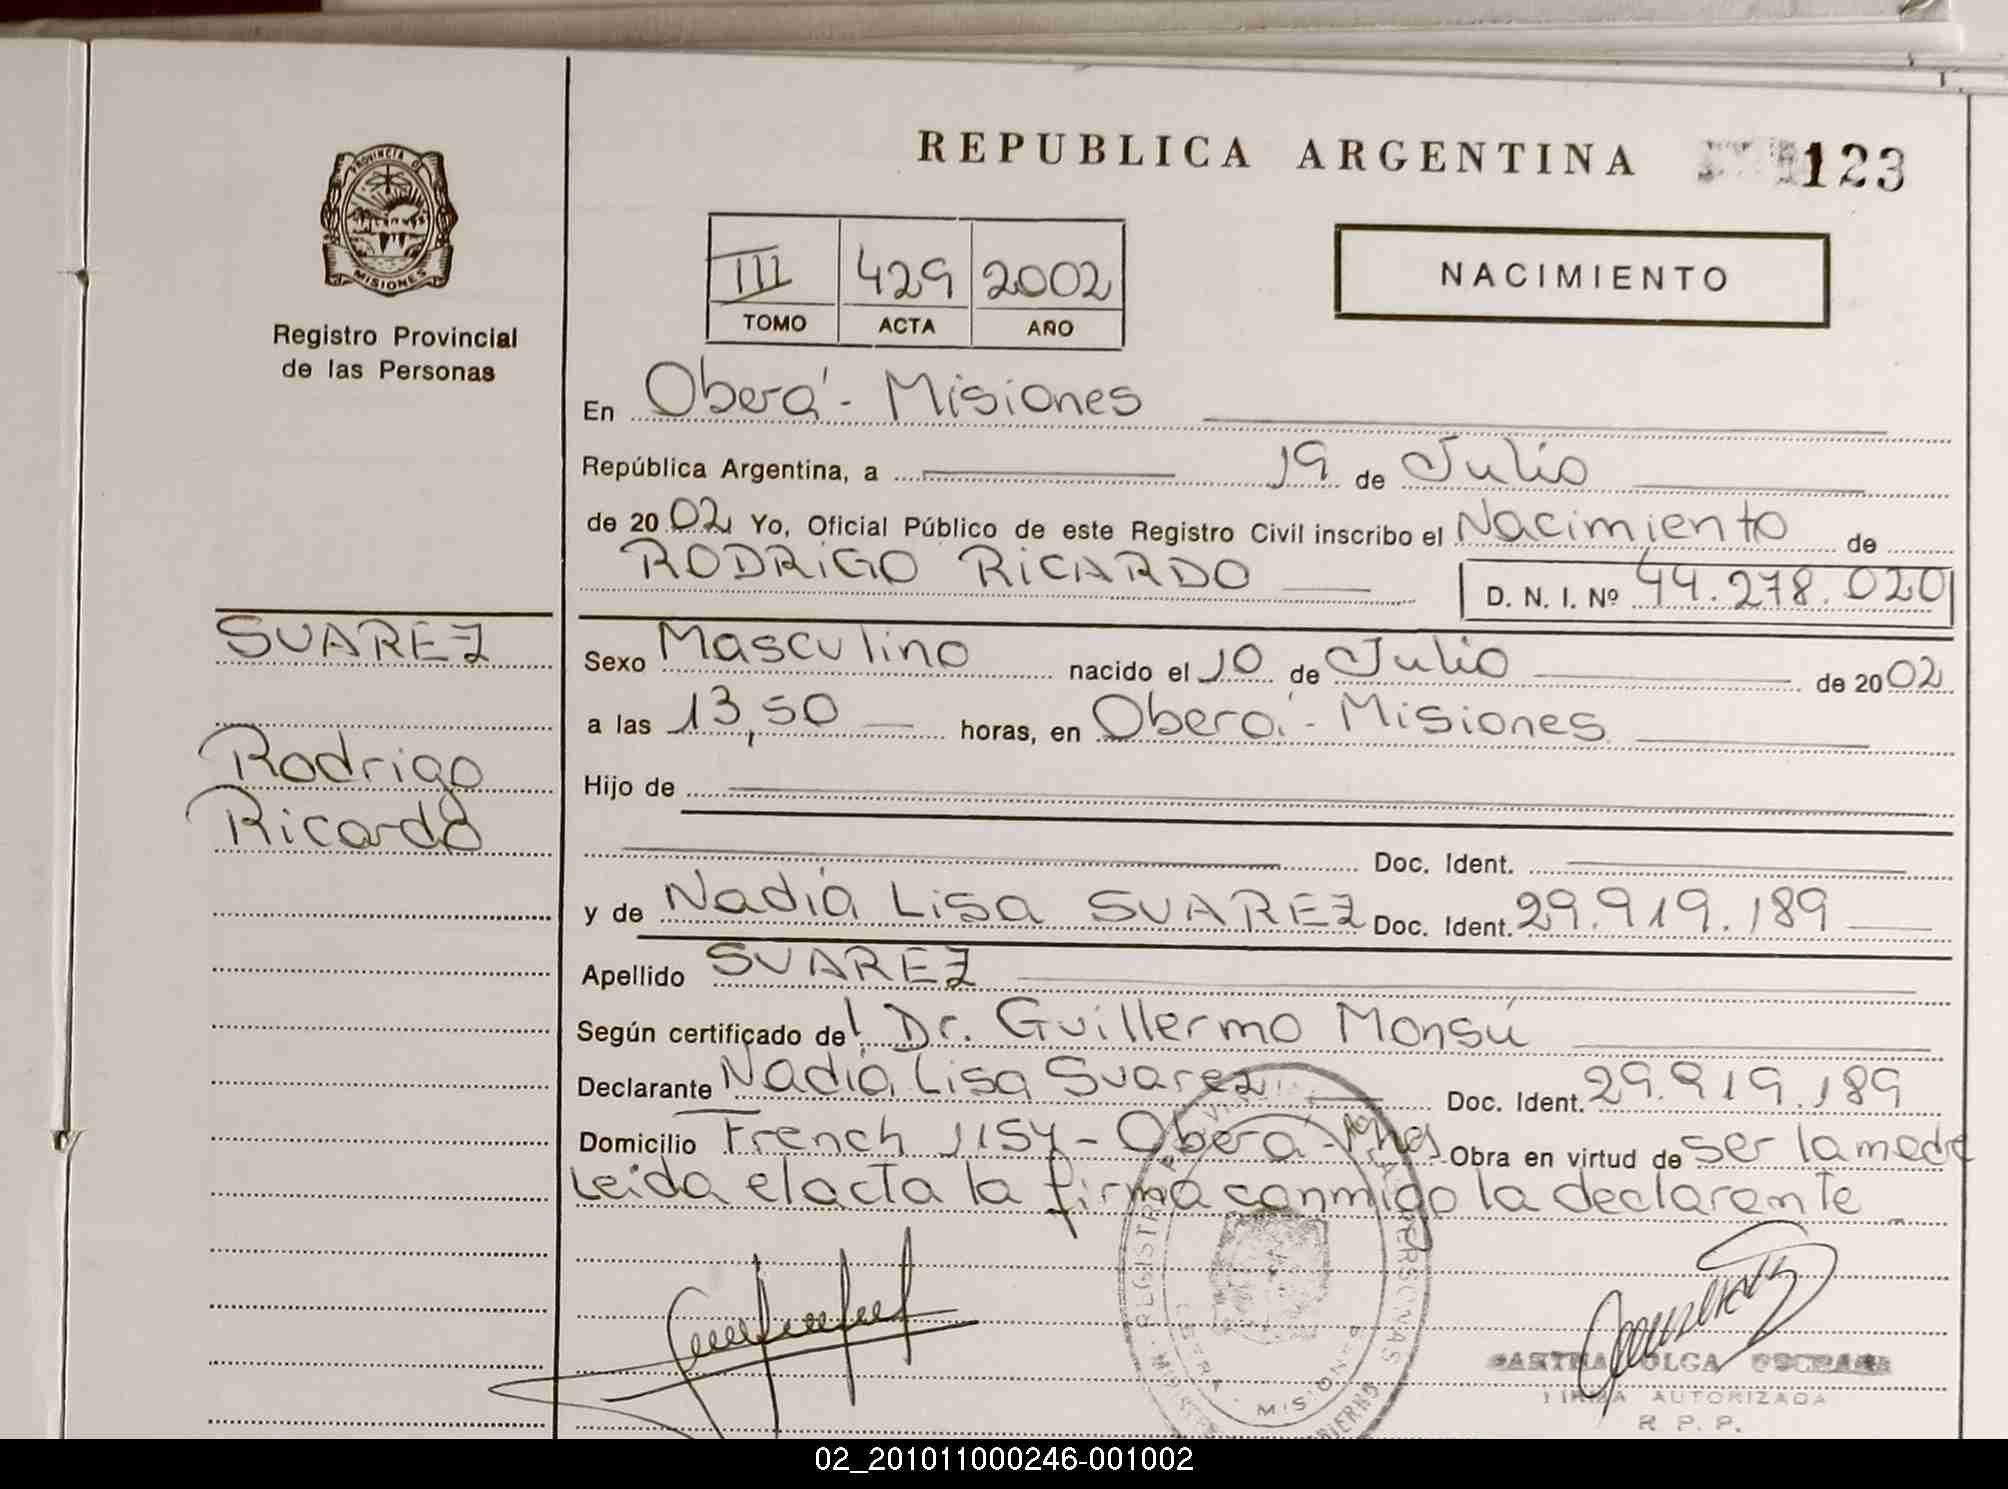 REPUBLICA ARGENTINA 123
PROVINCIA DE
MISIONES
Registro Provincial
de las Personas
III 429 2002
TOMO ACTA AÑO
NACIMIENTO
En Oberá - Misiones
República Argentina, a 19 de Julio
de 2002 Yo, Oficial Público de este Registro Civil inscribo el Nacimiento de
RODRIGO RICARDO D. N. I. Nº 44.278.020
SUAREZ
Rodrigo
Ricardo
Sexo Masculino nacido el 10 de Julio de 2002
a las 13,50 horas, en Oberá - Misiones
Hijo de
Doc. Ident.
y de Nadia Lisa SUAREZ Doc. Ident. 29.919.189
Apellido SUAREZ
Según certificado del Dr. Guillermo Monsú
Declarante Nadia Lisa Suarez Doc. Ident. 29.919.189
Domicilio French 1154 - Oberá - Mnes Obra en virtud de ser la madre
Leida el acta la firma conmigo la declarante
OLGA
FIRMA AUTORIZADA
R. P. P.
02_201011000246-001002